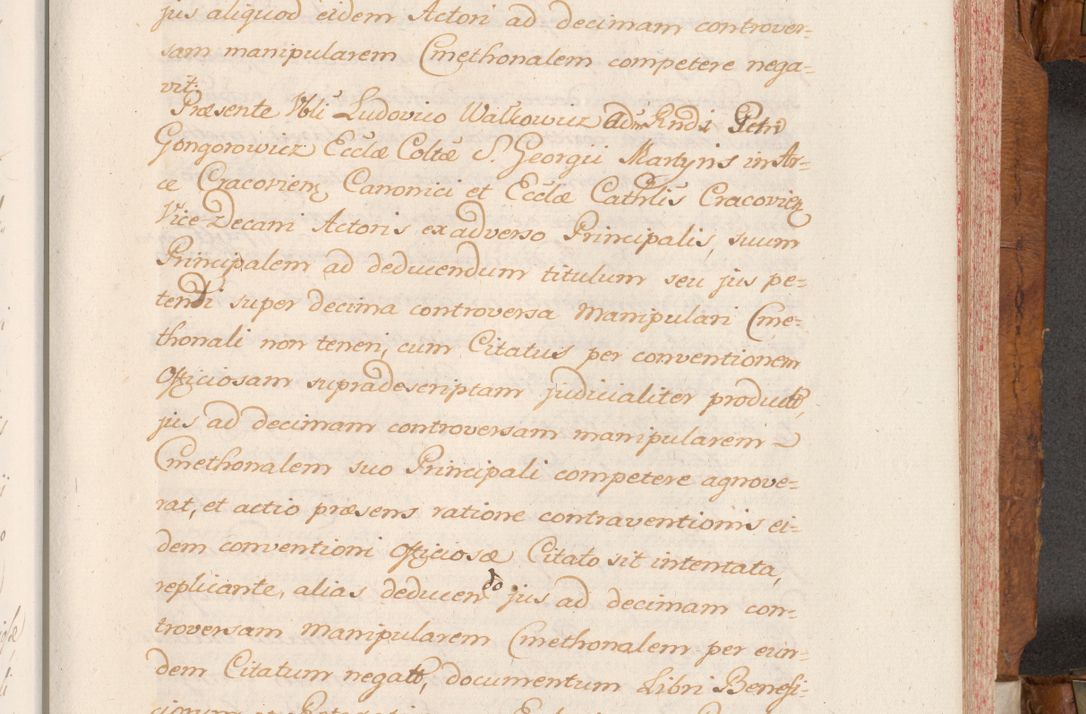 jus aliquod eidem Actori ad decimam controver=
sam manipularem Cmethonalem competere nega=
vit.
Præsente Nbli Ludovico Walkowicz Adm Rndi Petri
Gongorowicz Eccłæ Coltæ S. Georgii Martyris in Ar=
ce Cracovien, Canonici et Eccłæ Cathlis Cracovien
Vice-Decani Actoris ex adverso Principalis, suum
Principalem ad deducendum titulum seu jus pe=
tendi super decima controversa Manipulari Cme=
thonali non teneri, cum Citatus per conventionem
Officiosam supradescriptam judicialiter producto,
jus ad decimam controversam manipularem
Cmethonalem suo Principali competere agnove=
rat, et actio præsens ratione contraventionis ei=
dem conventioni Officiosæ Citato sit intentata,
replicante, alias deducendo jus ad decimam con=
troversam Manipularem Cmethonalem per eun=
dem Citatum negato, documentum Libri Benefi=
ciorum et